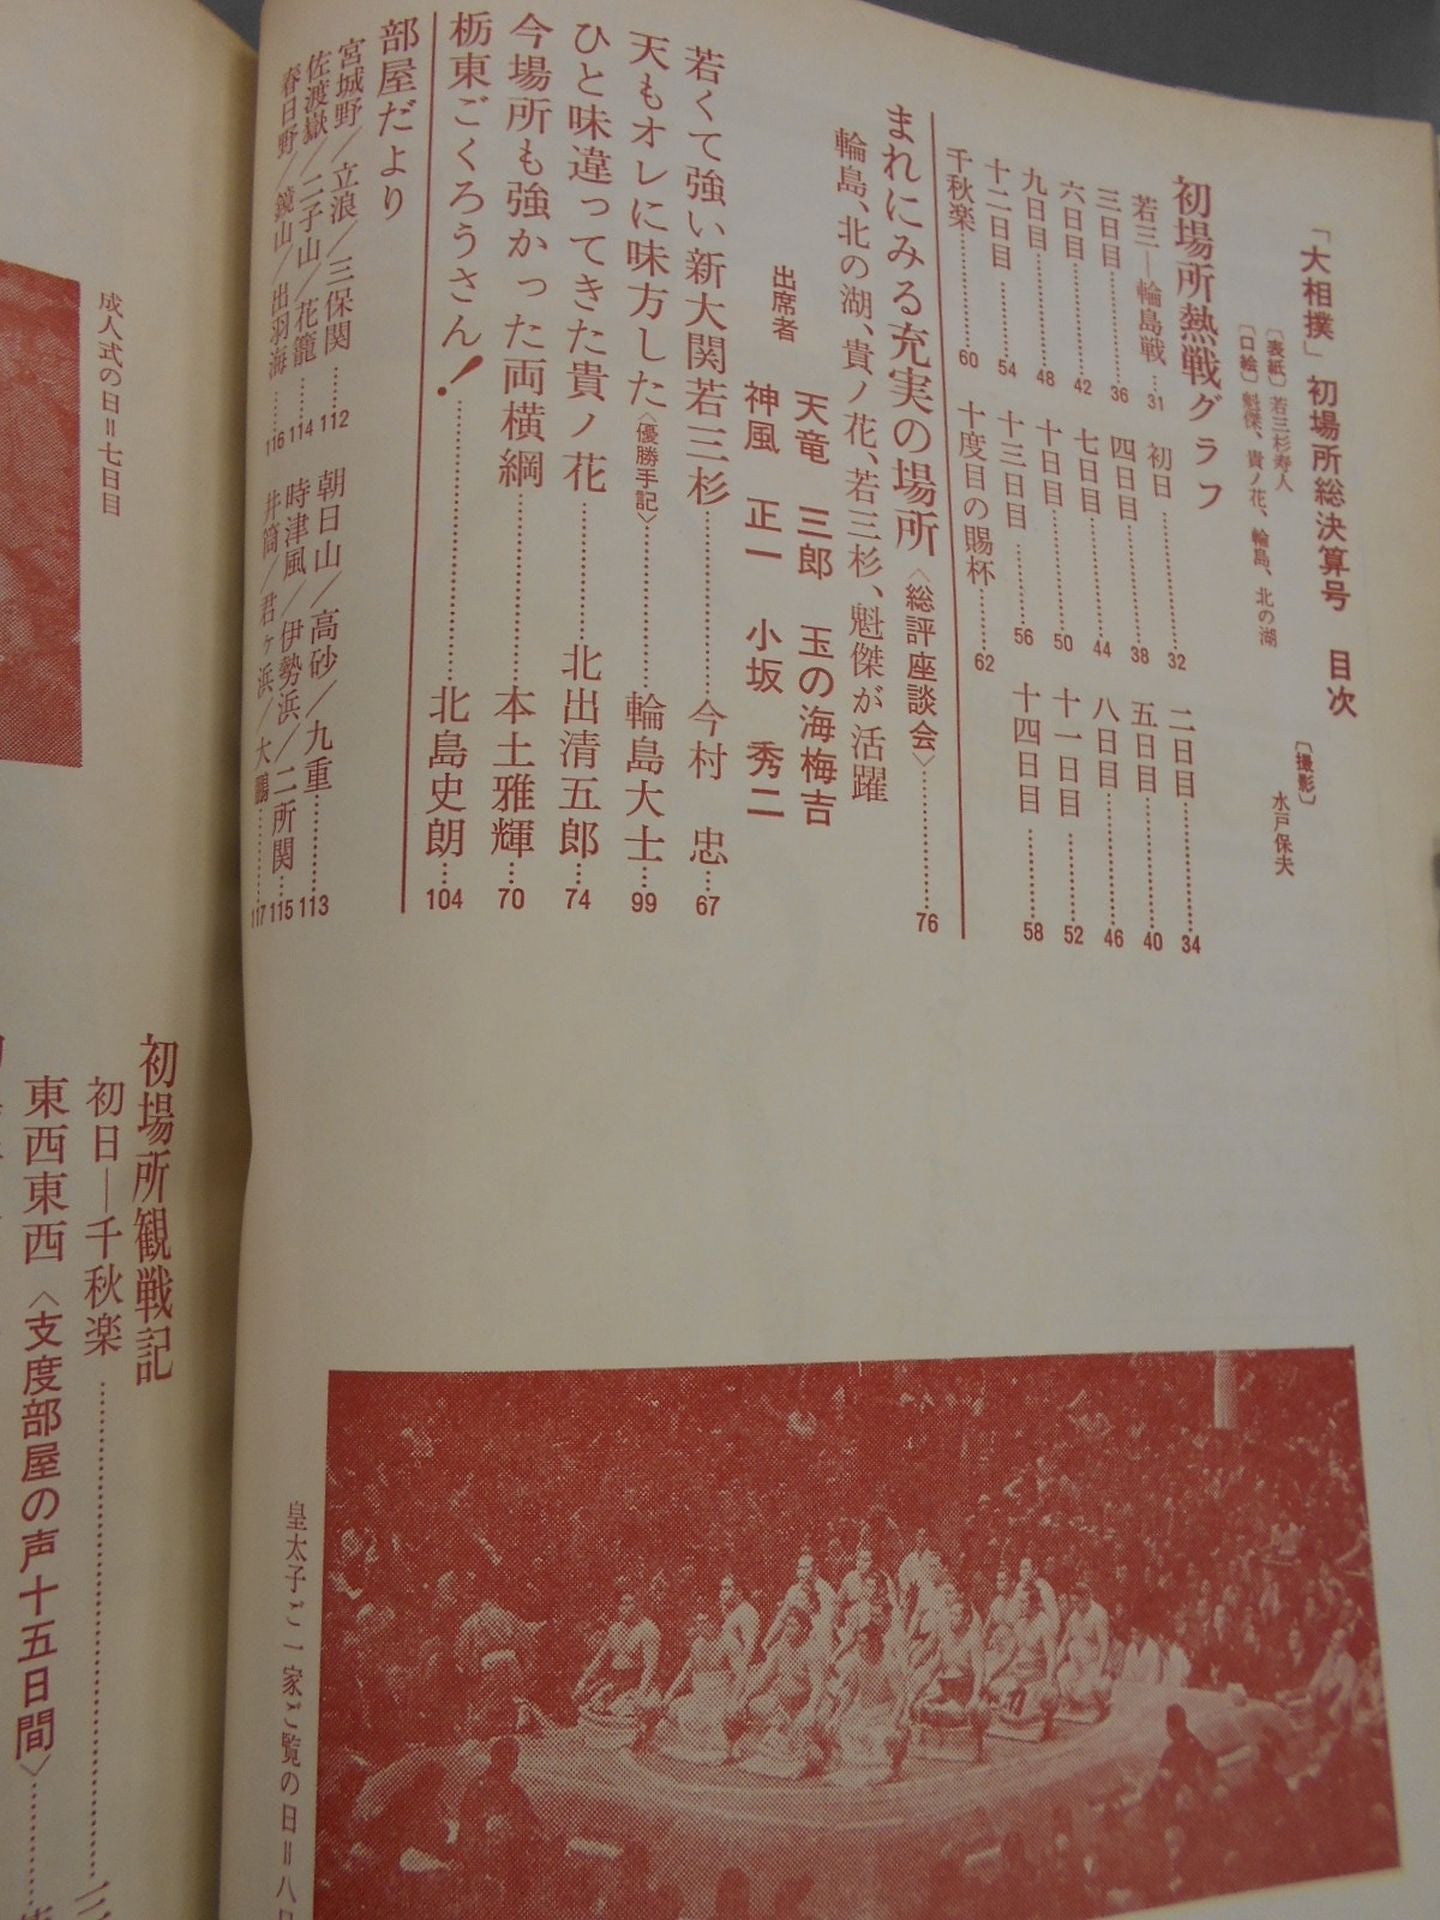 「大相撲」初場所総決算号　目次
〔表紙〕若三杉寿人
〔口絵〕魁傑、貴ノ花、輪島、北の湖
〔撮影〕
水戸保夫
初場所熱戦グラフ
若三―輪島戦…31
初日…………32
二日目…………34
三日目…………36
四日目…………38
五日目…………40
六日目…………42
七日目…………44
八日目…………46
九日目…………48
十日目…………50
十一日目………52
十二日目………54
十三日目………56
十四日目………58
千秋楽…………60
十度目の賜杯……62
まれにみる充実の場所〈総評座談会〉…………76
輪島、北の湖、貴ノ花、若三杉、魁傑が活躍
出席者
天竜　三郎　玉の海梅吉
神風　正一　小坂　秀二
若くて強い新大関若三杉…………今村　忠…67
天もオレに味方した〈優勝手記〉…………輪島大士…99
ひと味違ってきた貴ノ花…………北出清五郎…74
今場所も強かった両横綱…………本土雅輝…70
栃東ごくろうさん！…………北島史朗…104
部屋だより
宮城野／立浪／三保関……112
朝日山／高砂／九重………113
佐渡嶽／二子山／花籠……114
時津風／伊勢浜／二所関…115
春日野／鏡山／出羽海……116
井筒／君ヶ浜／大鵬………117
皇太子ご一家ご覧の日＝八日
成人式の日＝七日目
初場所観戦記
初日―千秋楽…………
東西東西〈支度部屋の声十五日間〉…………